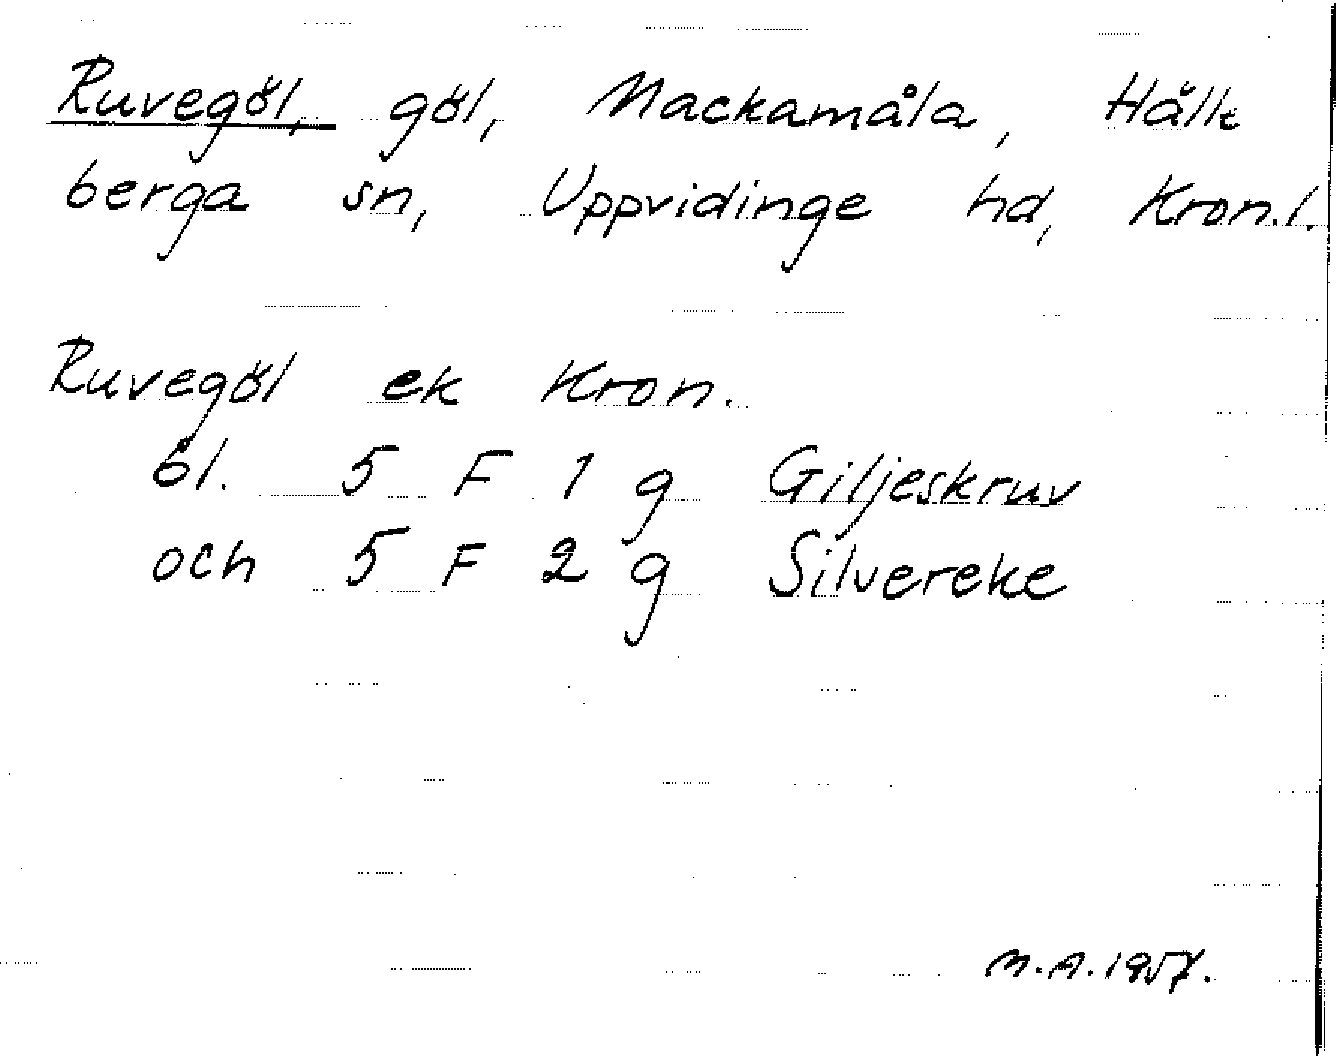 Ruvegöl, göl, Mackamåla, Hälle
berga sn, Uppvidinge hd, Kron.l.
Ruvegöl ek Kron.
bl. 5 F 1 g Giljeskruv
och 5 F 2 g Silvereke
M.A.1957.